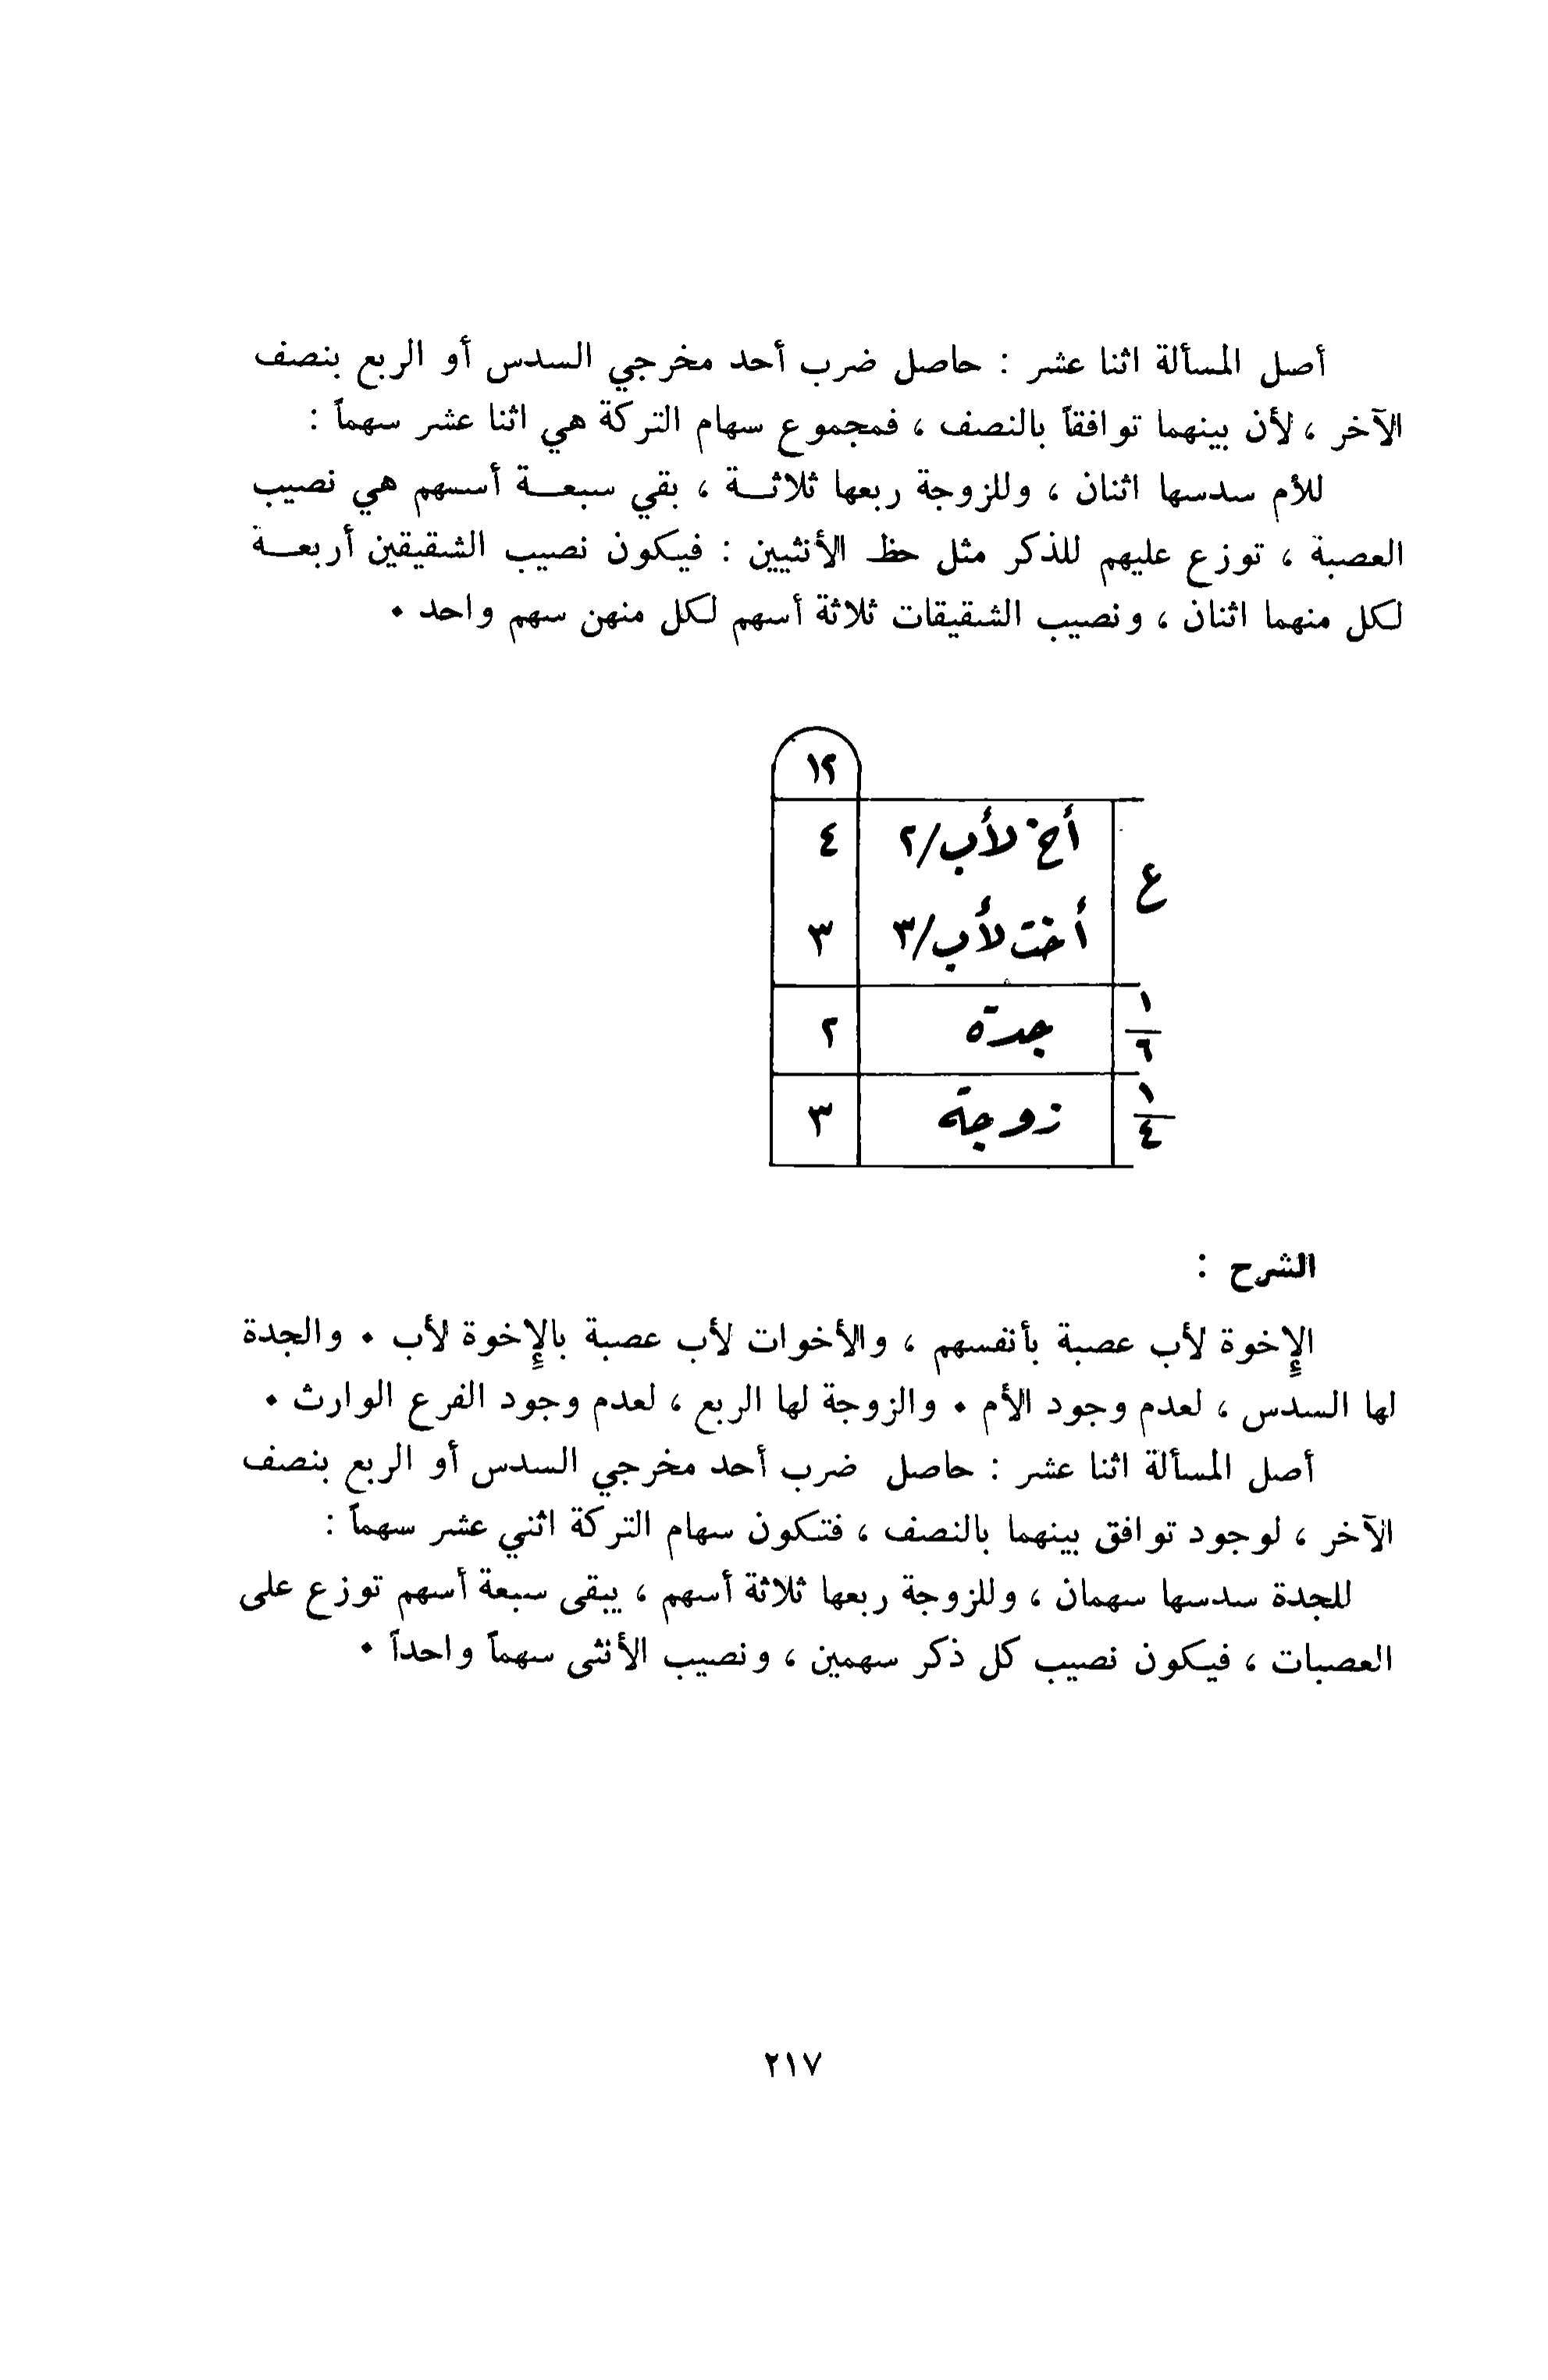 أصل المسألة اثنا عشر : حاصل ضرب أحد مخرجي السدس أو الربع بنصف
الآخر ، لأن بينهما توافقاً بالنصف ، فمجموع سهام التركة هي اثنا عشر سهماً :
للأم سدسها اثنان ، وللزوجة ربعها ثلاثـــة ، بقي سبعـــة أسسهم هي نصيب
العصبة ، توزع عليهم للذكر مثل حظ الأنثيين : فيكون نصيب الشقيقين أربعـــة
لكل منهما اثنان ، ونصيب الشقيقات ثلاثة أسهم لكل منهن سهم واحد ٠
١٢
ع أخ لأب/٢ ٤
أخت لأب/٣ ٣
١/٦ جدة ٢
١/٤ زوجة ٣
الشرح :
الإخوة لأب عصبة بأنفسهم ، والأخوات لأب عصبة بالإخوة لأب ٠ والجدة
لها السدس ، لعدم وجود الأم ٠ والزوجة لها الربع ، لعدم وجود الفرع الوارث ٠
أصل المسألة اثنا عشر : حاصل ضرب أحد مخرجي السدس أو الربع بنصف
الآخر ، لوجود توافق بينهما بالنصف ، فتكون سهام التركة اثني عشر سهماً :
للجدة سدسها سهمان ، وللزوجة ربعها ثلاثة أسهم ، يبقى سبعة أسهم توزع على
العصبات ، فيكون نصيب كل ذكر سهمين ، ونصيب الأنثى سهماً واحداً ٠
٢١٧